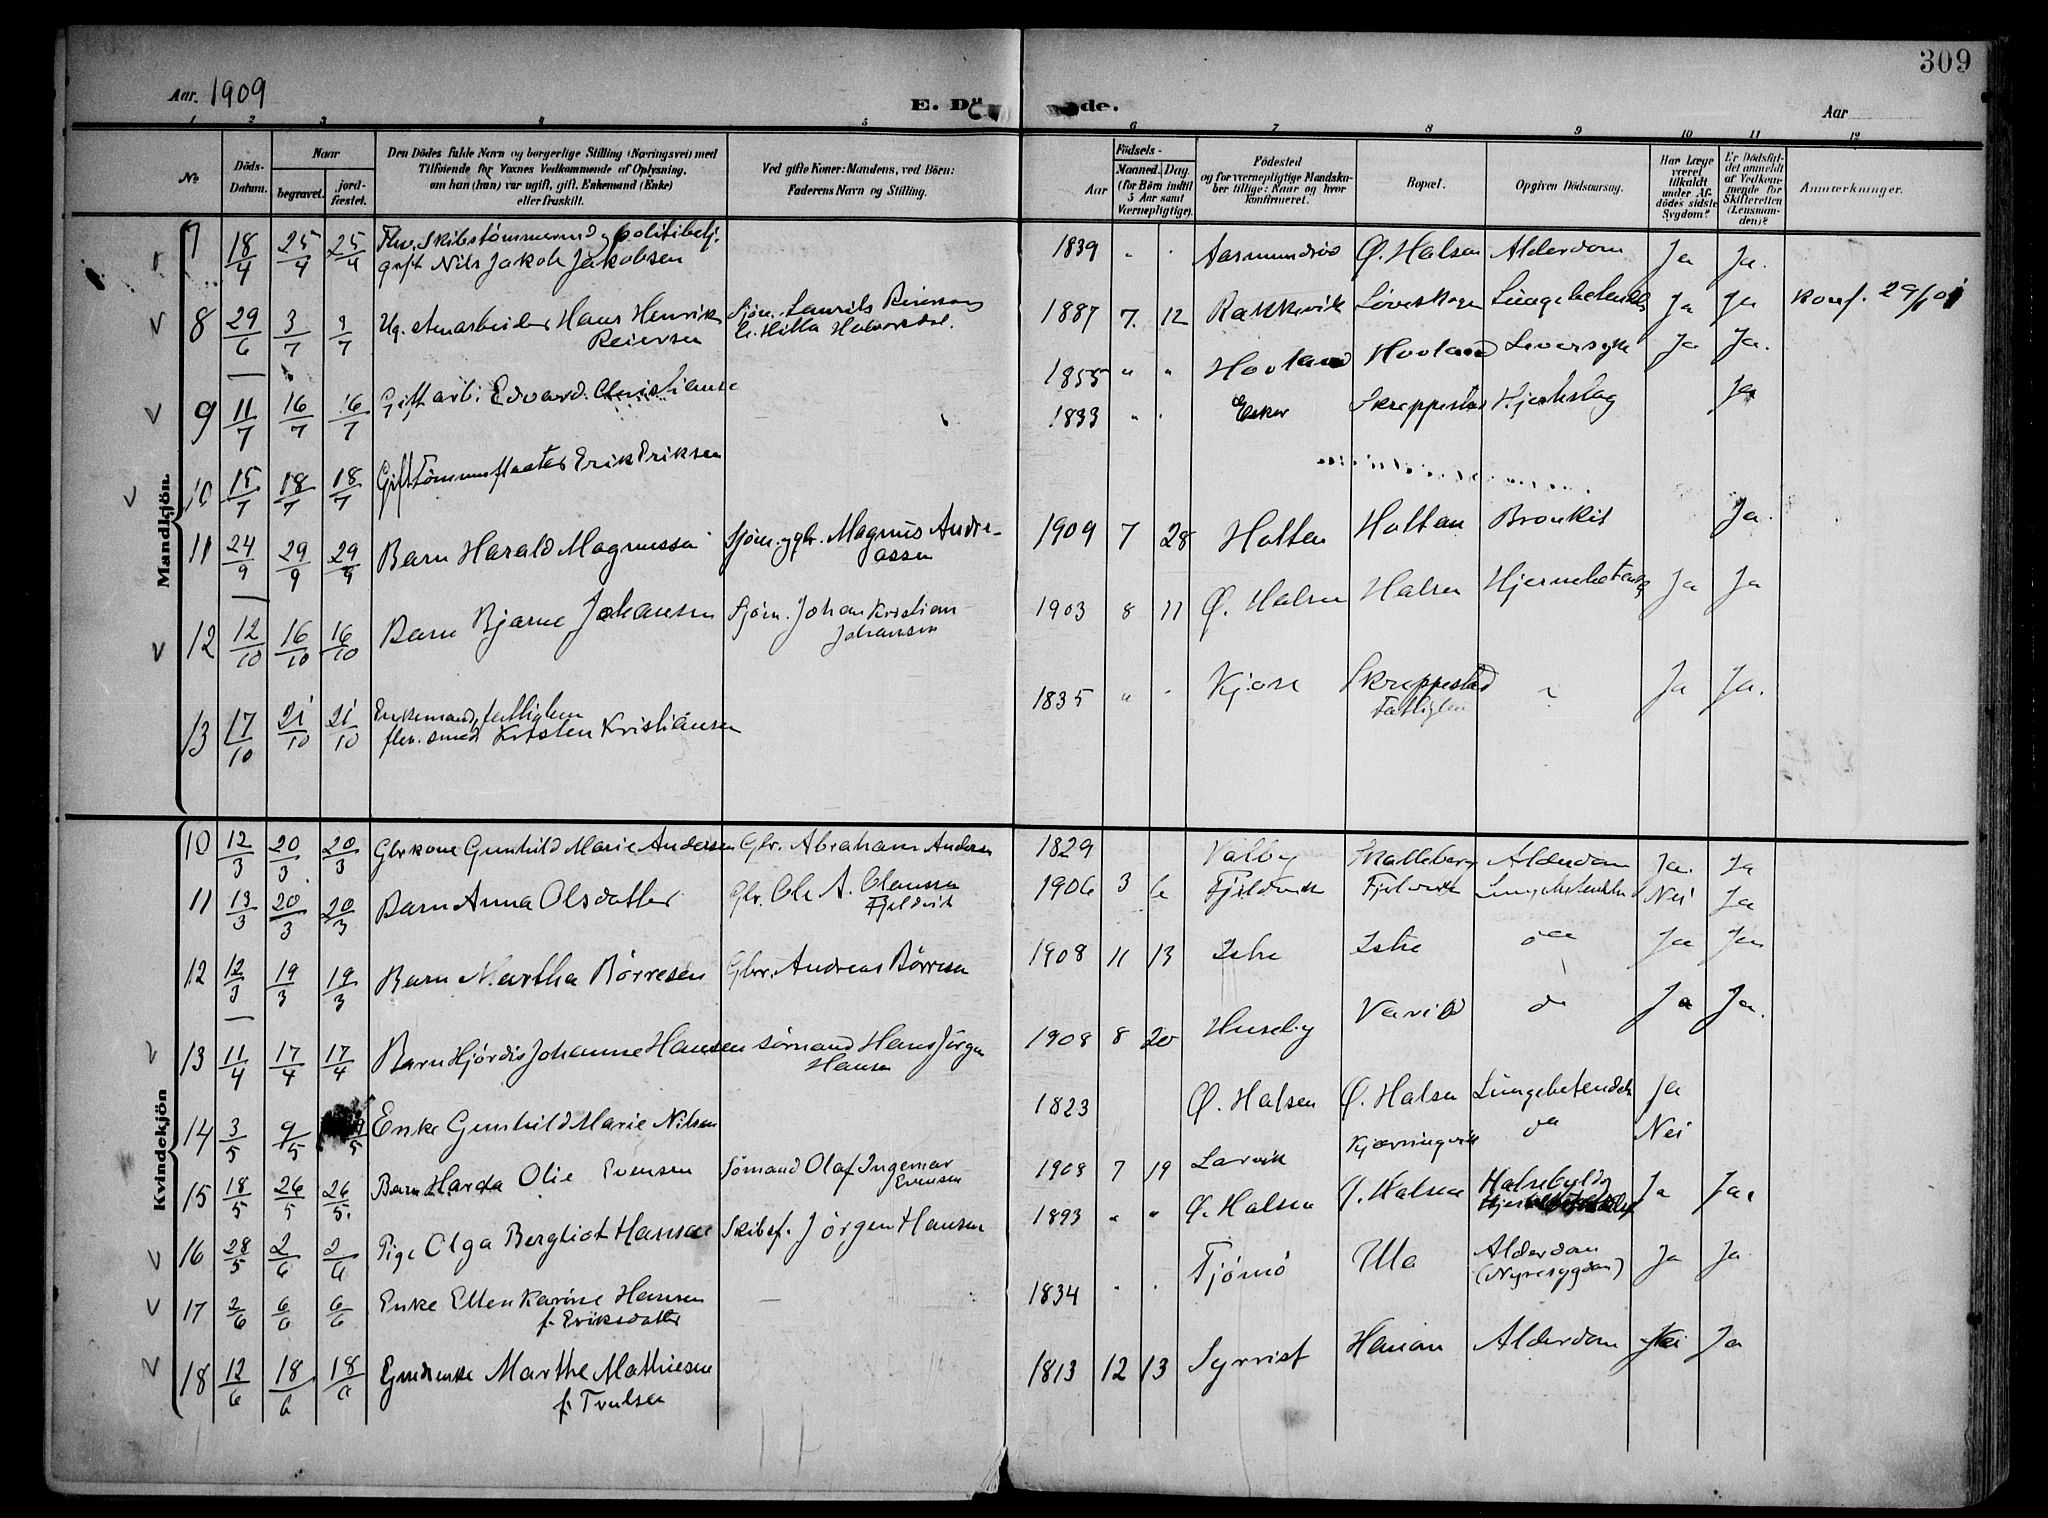 309
Aar. 1909
E. Dö de.
Aar
1 2 3 4 5 6 7 8 9 10 11 12
№
Döds-Datum.
Naar
begravet.
jord-fæstet.
Den Dödes fulde Navn og borgerlige Stilling (Næringsvei) med
Tilføiende for Voxnes Vedkommende af Oplysning,
om han (hun) var ugift, gift, Enkemand (Enke)
eller fraskilt.
Ved gifte Koner: Mandens, ved Börn:
Faderens Navn og Stilling.
Födsels-
Aar
Maaned. Dag.
(for Börn indtil
5 Aar samt
Værnepligtige).
Födested
og for værnepligtige Mandska-
ber tillige: Naar og hvor
konfirmeret.
Bopæl.
Opgiven Dödsaarsag.
Har Læge
været
tilkaldt
under Af-
dödes sidste
Sygdom?
Er Dödsfal-
det anmeldt
af Vedkom-
mende for
Skifteretten
(Lensman-
den)?
Anmærkninger.
Mandkjön.
7 18/4 25/4 25/4 Skibstømmermand politibetj. 1839 " " Ø. Halsen Alderdom Ja Ja.
gift Nils Jakob Jakobsen
8 29/6 3/7 3/7 Ug. Hans Henrik Sjøm. Laurits Reiersen 1887 7. 12 Rakkevik Løveskogen Lungebetendelse Ja Ja Konf. 29/
Reiersen
9 11/7 16/7 16/7 Gift arb. Edvard Christiansen 1855 " " Hovland Hovland Leversyge Ja Ja.
10 15/7 18/7 18/7 Gift Tømmerflaater Erik Eriksen 1833 " " Skreppestad Hjerteslag Ja
11 24/9 29/9 29/9 Barn Harald Magnussen Sjøm. og gbr. Magnus Andre- 1909 7 28 Holten Holtan Bronkit Ja.
assen
12 12/10 16/10 16/10 Barn Bjarne Johansen Sjøm. Johan Kristian 1903 8 11 Ø. Halsen Halsen Hjernebetændelse Ja Ja
Johansen
13 17/10 21/10 21/10 Enkemand, fattiglem 1835 " " Kjose Skreppestad " Ja Ja.
flev. smed Kristen Kristiansen Fattiglem
Kvindekjön
10 12/3 20/3 20/3 Gbrkone Gunhild Marie Andersen Gbr. Abraham Andersen 1829 Valby Skalleberg Alderdom Ja. Ja
11 13/3 20/3 20/3 Barn Anna Olsdatter Gbr. Ole A. Clausen 1906 3 6 Fjeldvik Fjeldvik Lungebetendelse Nei Ja
Fjeldvik
12 12/3 19/3 19/3 Barn Martha Børresen Gbr. Andreas Børresen 1908 11 13 Istre Istre do Ja Ja
13 11/4 17/4 17/4 Barn Hjørdis Johanne Hansen Sømand Hans Jörgen 1908 8 20 Huseby Varild do Ja Ja.
Hansen
14 3/5 9/5 9/5 Enke Gunhild Marie Nilsen 1823 Ø. Halsen Ø. Halsen Lungebetendelse Ja
15 18/5 26/5 26/5. Barn Harda Olie Evensen Sømand Olaf Ingemar 1908 7 19 Larvik Kjærringvik do Nei
Evensen
16 28/5 2/6 2/6 Pige Olga Bergliot Hansen Skibsf. Jørgen Hansen 1893 " " Ø. Halsen Ø. Halsen Halsebyld Ja Ja.
17 2/6 6/6 6/6 Enke Ellen Karine Hansen 1834 " " Tjømö Ula Alderdom Ja Ja
f. Eriksdatter (Nyresygdom)
18 12/6 18/6 18/6 Marthe Mathiesen 1813 12 13 Syrrist Hanan Alderdom Nei Ja